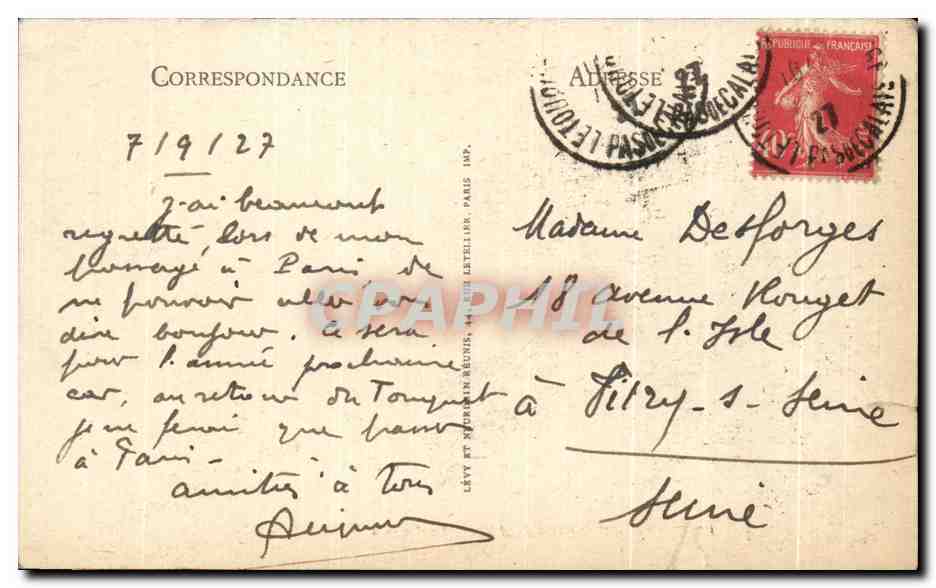 CORRESPONDANCE
ADRESSE
RÉPUBLIQUE FRANÇAISE
LE TOUQUET
PAS DE CALAIS
27
7/9/27
J'ai beaucoup
regretté, lors de mon
passage à Paris de
ne pouvoir aller vous
dire bonjour. Ce sera
pour l'année prochaine
car, au retour du Touquet
je ne ferai que passer
à Paris -
amitiés à tous
LÉVY ET NEURDEIN RÉUNIS, 44, RUE LETELLIER, PARIS IMP.
Madame Desforges
18 avenue Rouget
de l'Isle
à Vitry-s-Seine
Seine
CPAPHIL